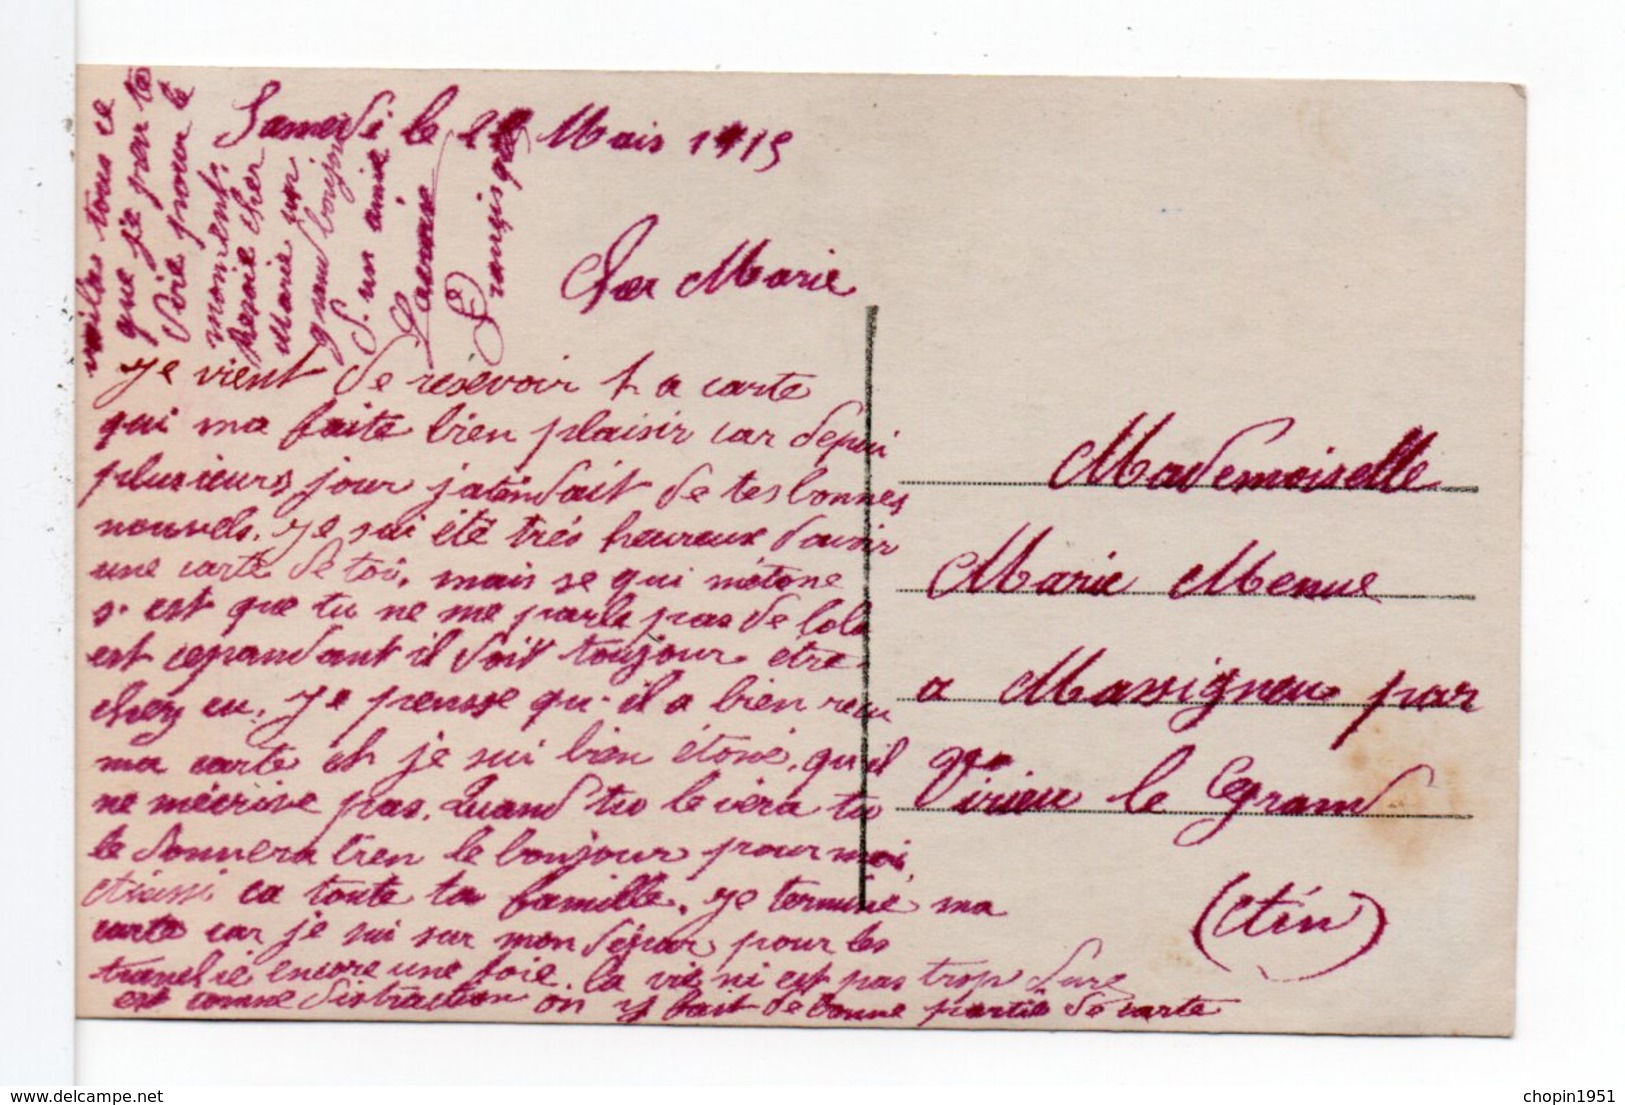 Samedi le Mais 1915
Cher Marie
Je vient de resevoir t a carte
qui ma faite bien plaisir car depui
plusieurs jour j atendait de tes bonnes
nouvels. Je sui été trés heureux d avoir
une carte de toi. mais se qui métone
s. est que tu ne me parle pas de lolo
est cepandant il doit toujour étre
chez eu. Je pensse qu. il a bien recu
ma carte et je sui bien étoné. qu il
ne mécrive pas. Quand tu le vera tu
le donnera bien le bonjour pour moi
ausi ca toute ta famille. Je termine ma
carte car je sui sur mon dépar pour les
tranchée encore une foie. la vie ni est pas trop dure
est comme distraction on y fait de bonne partie de carte
voila tous ce
que je peu te
dire pour le
moment.
Resoie cher
Marie un
grand bonjour
d. un ami
François
Mademoiselle
Marie
a Massigneu par
Virieu le Grand
(Ain)
delcampe.net
chopin1951